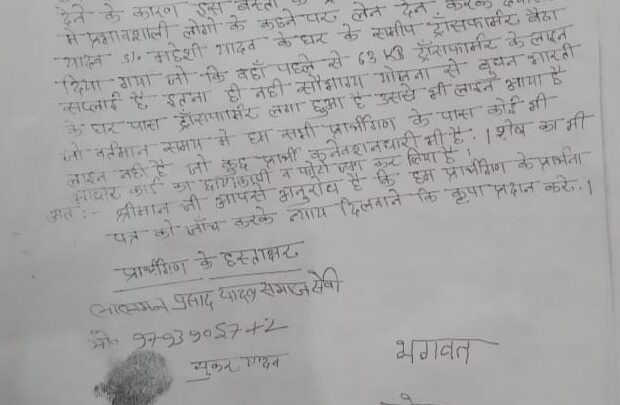 देने के कारण इस बस्ती के
मे प्रभावशाली लोगो के कहने पर लेन देन करके
यादव S/o महेशी यादव के घर के समीप ट्राँसफार्मर बैठा
दिया गया जो कि वहाँ पहले से 63 KB ट्राँसफार्मर के लाइन
सप्लाई है इतना ही नही सौभाग्य योजना से बुधन भारती
के घर पास ट्राँसफार्मर लगा हुआ है उससे भी लाइन आया है
जो वर्तमान समय मे हम सभी प्रार्थीगण के पास कोई भी
लाइन नही है जो कुछ प्रार्थी कनेक्शनधारी भी है। शेष का भी
आधार कार्ड का छायाकापी व फोटो जमा कर लिया है।
अतः :- श्रीमान जी आपसे अनुरोध है कि हम प्रार्थीगण के प्रार्थना
पत्र को जाँच करके न्याय दिलवाने कि कृपा प्रदान करे..।
प्रार्थीगण के हस्ताक्षर
प्रसाद यादव समाज सेवी
मो०
यादव
भगवत